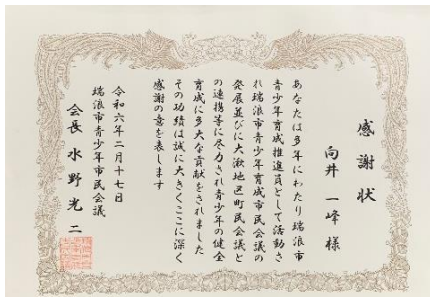 感謝状
向井 一峰 様
あなたは多年にわたり瑞浪市
青少年育成推進員として活動さ
れ瑞浪市青少年育成市民会議の
発展並びに大湫地区町民会議と
の連携等に尽力され青少年の健全
育成に多大な貢献をされました
その功績は誠に大きくここに深く
感謝の意を表します
令和六年二月十七日
瑞浪市青少年市民会議
会長 水野光二